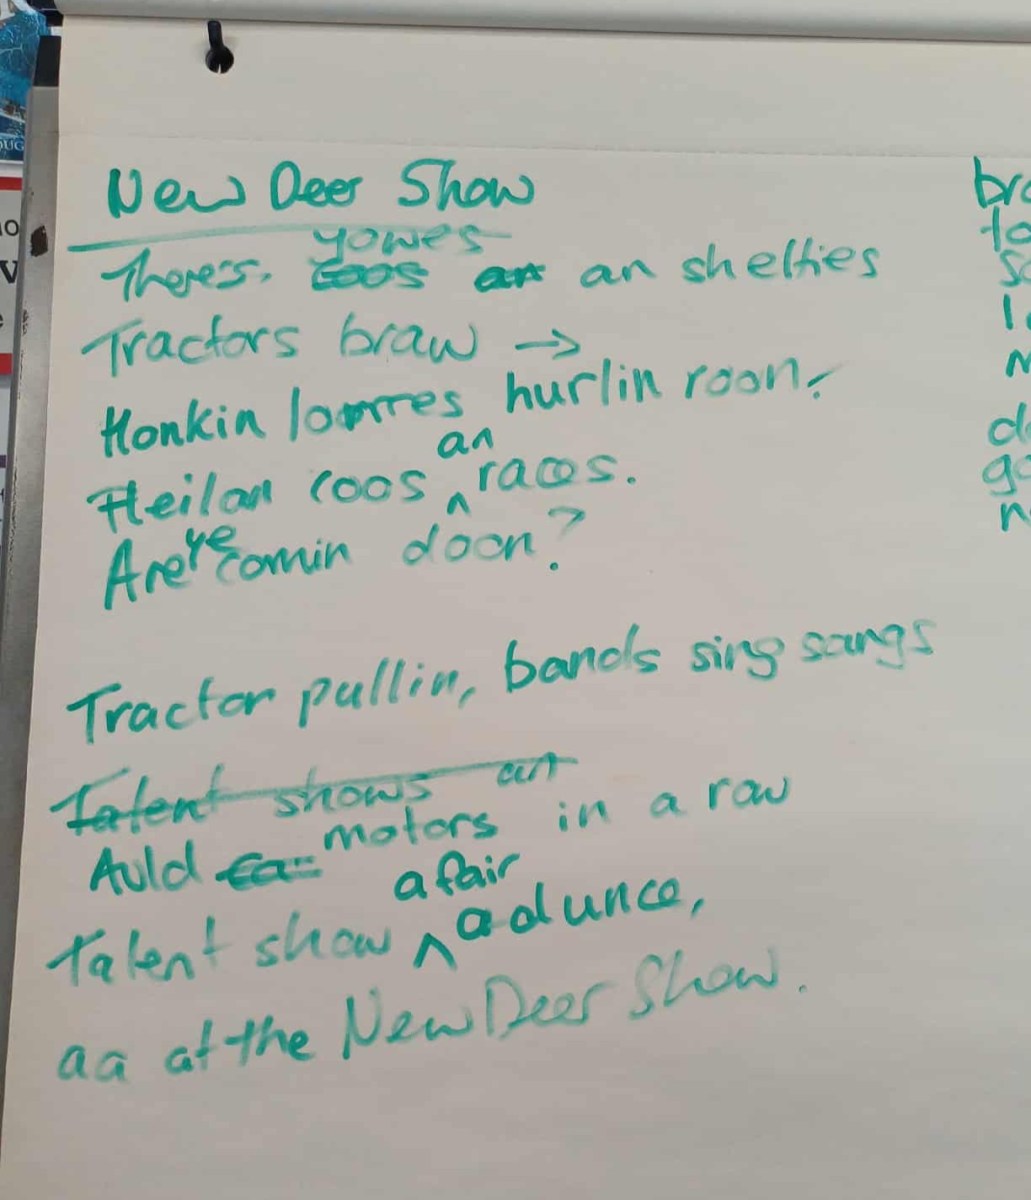 New Deer Show
yowes
There's coos art an shelties
Tractors braw →
Honkin lorrres hurlin roon.
an
Heilan coos ^ races.
Are ye comin doon?
Tractor pullin, bands sing sangs
Talent shows art
Auld ca motors in a raw
a fair
Talent show ^ a dunce,
aa at the New Deer Show.